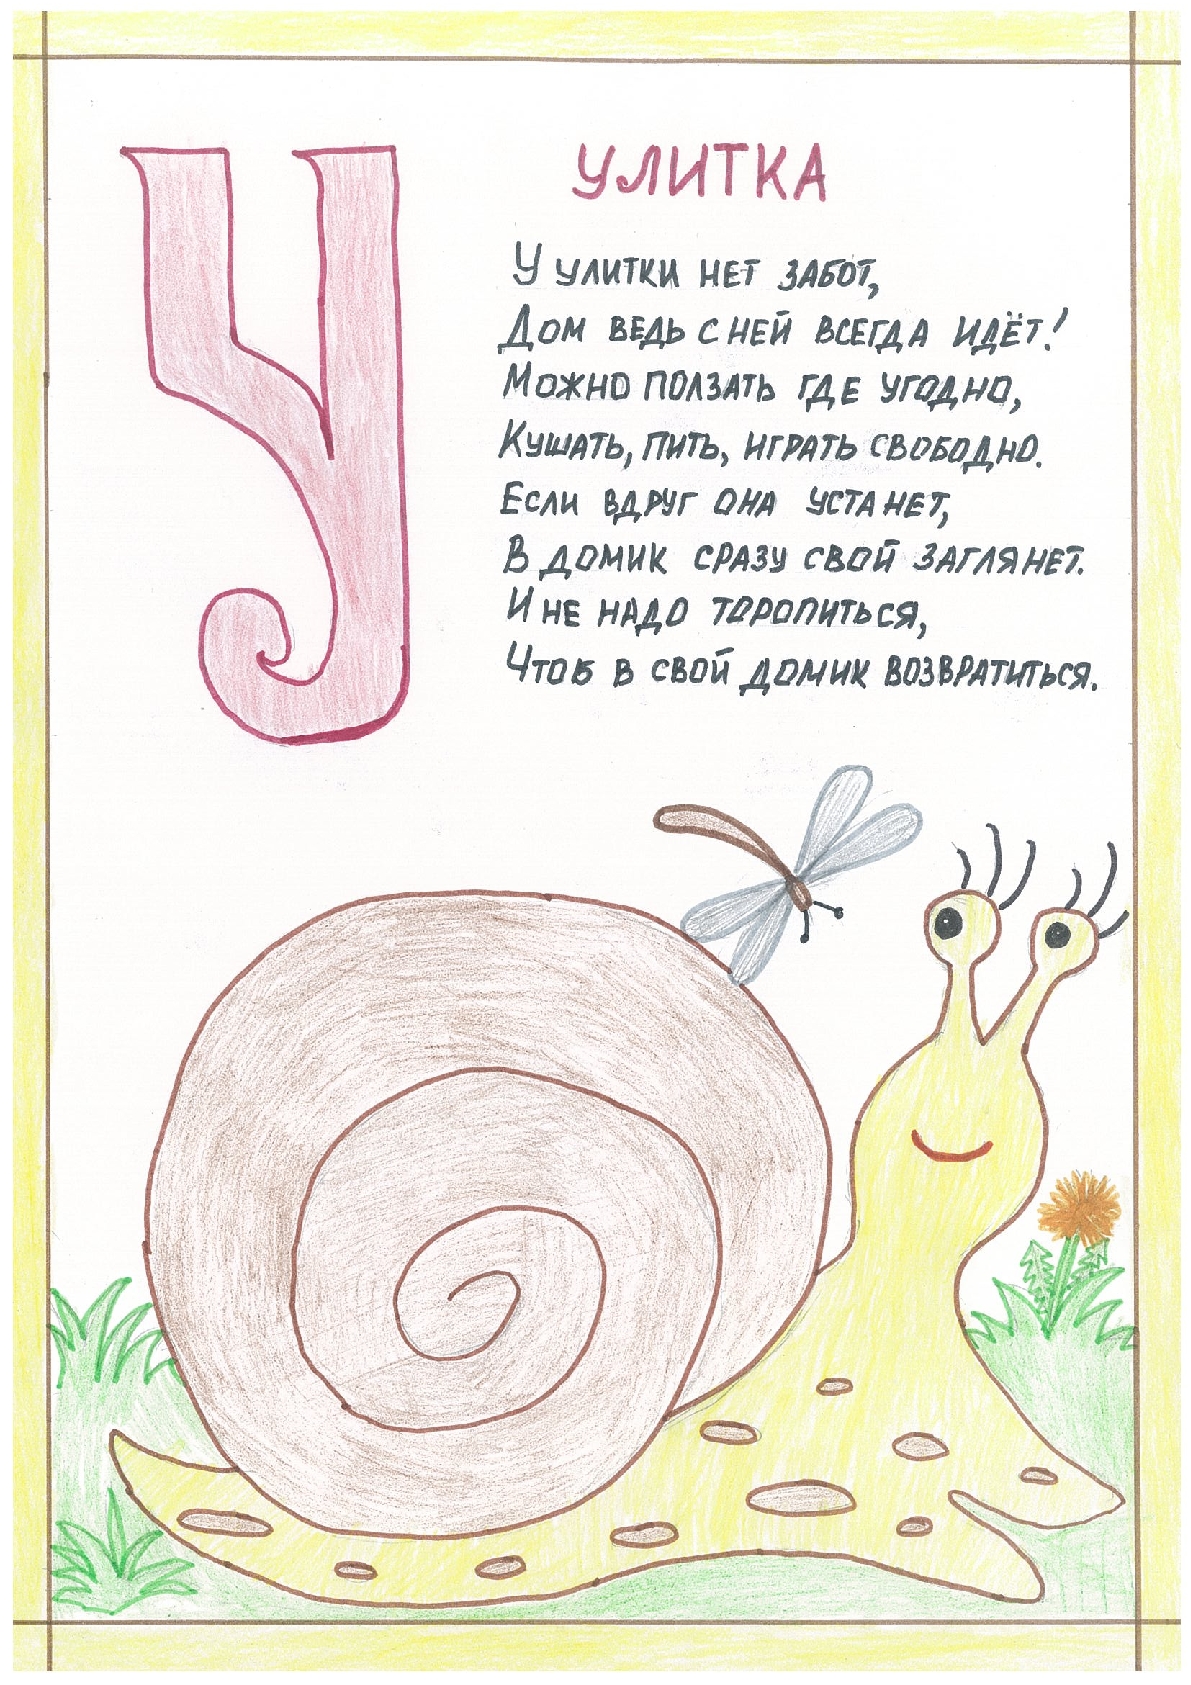 У
УЛИТКА
У улитки нет забот,
Дом ведь с ней всегда идёт!
Можно ползать где угодно,
Кушать, пить, играть свободно.
Если вдруг она устанет,
В домик сразу свой заглянет.
И не надо торопиться,
Чтоб в свой домик возвратиться.